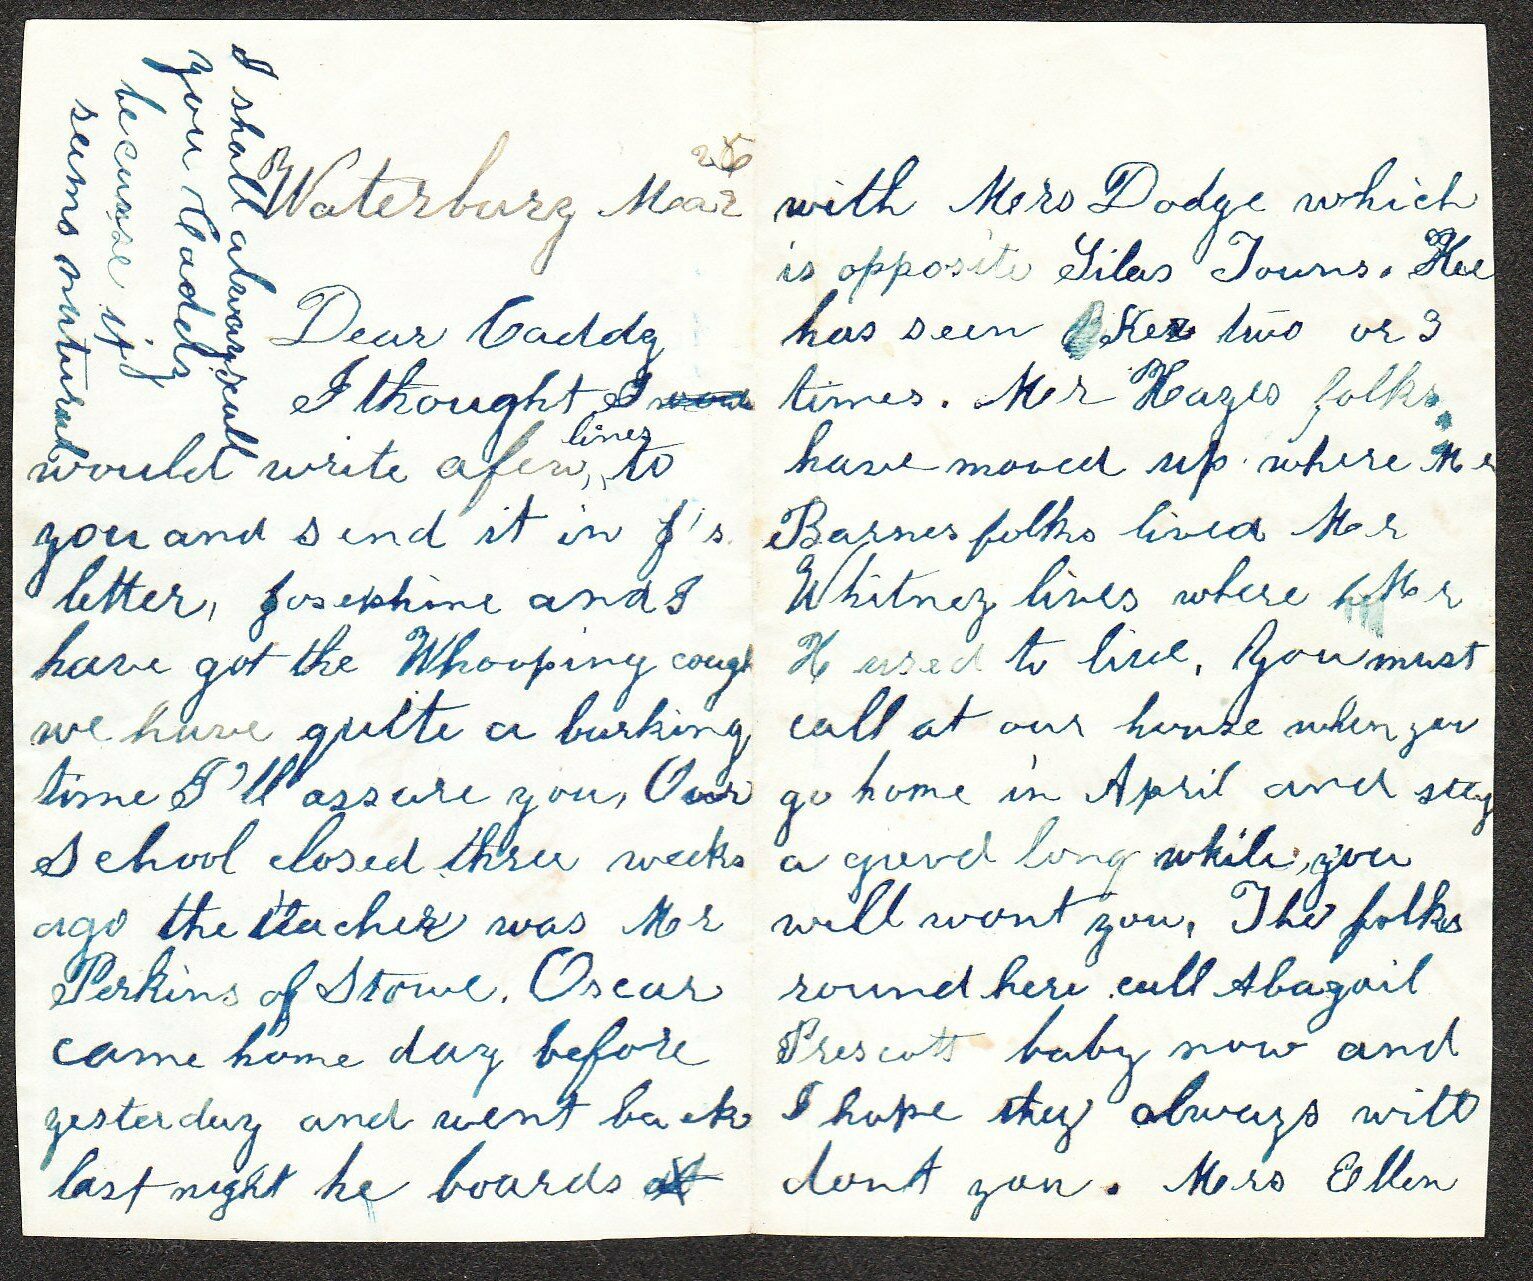 I shall always call
you Caddy
because it
seems natural
Waterbury Mar 26
Dear Caddy
I thought I
would write a few lines to
you and send it in J's
letter, Josephine and I
have got the Whooping cough
we have quite a barking
time I'll assure you, Our
School closed three weeks
ago the teacher was Mr
Perkins of Stowe. Oscar
came home day before
yesterday and went back
last night he boards
with Mrs Dodge which
is opposite Silas Towns. He
has seen Kez two or 3
times. Mr Hayes folks
have moved up where Mr
Barnes folks lived Mr
Whitney lives where Mr
H used to live, You must
call at our house when you
go home in April and stay
a good long while, you
will wont you, The folks
round here call Abagail
Prescott baby now and
I hope they always will
dont you. Mrs Ellen